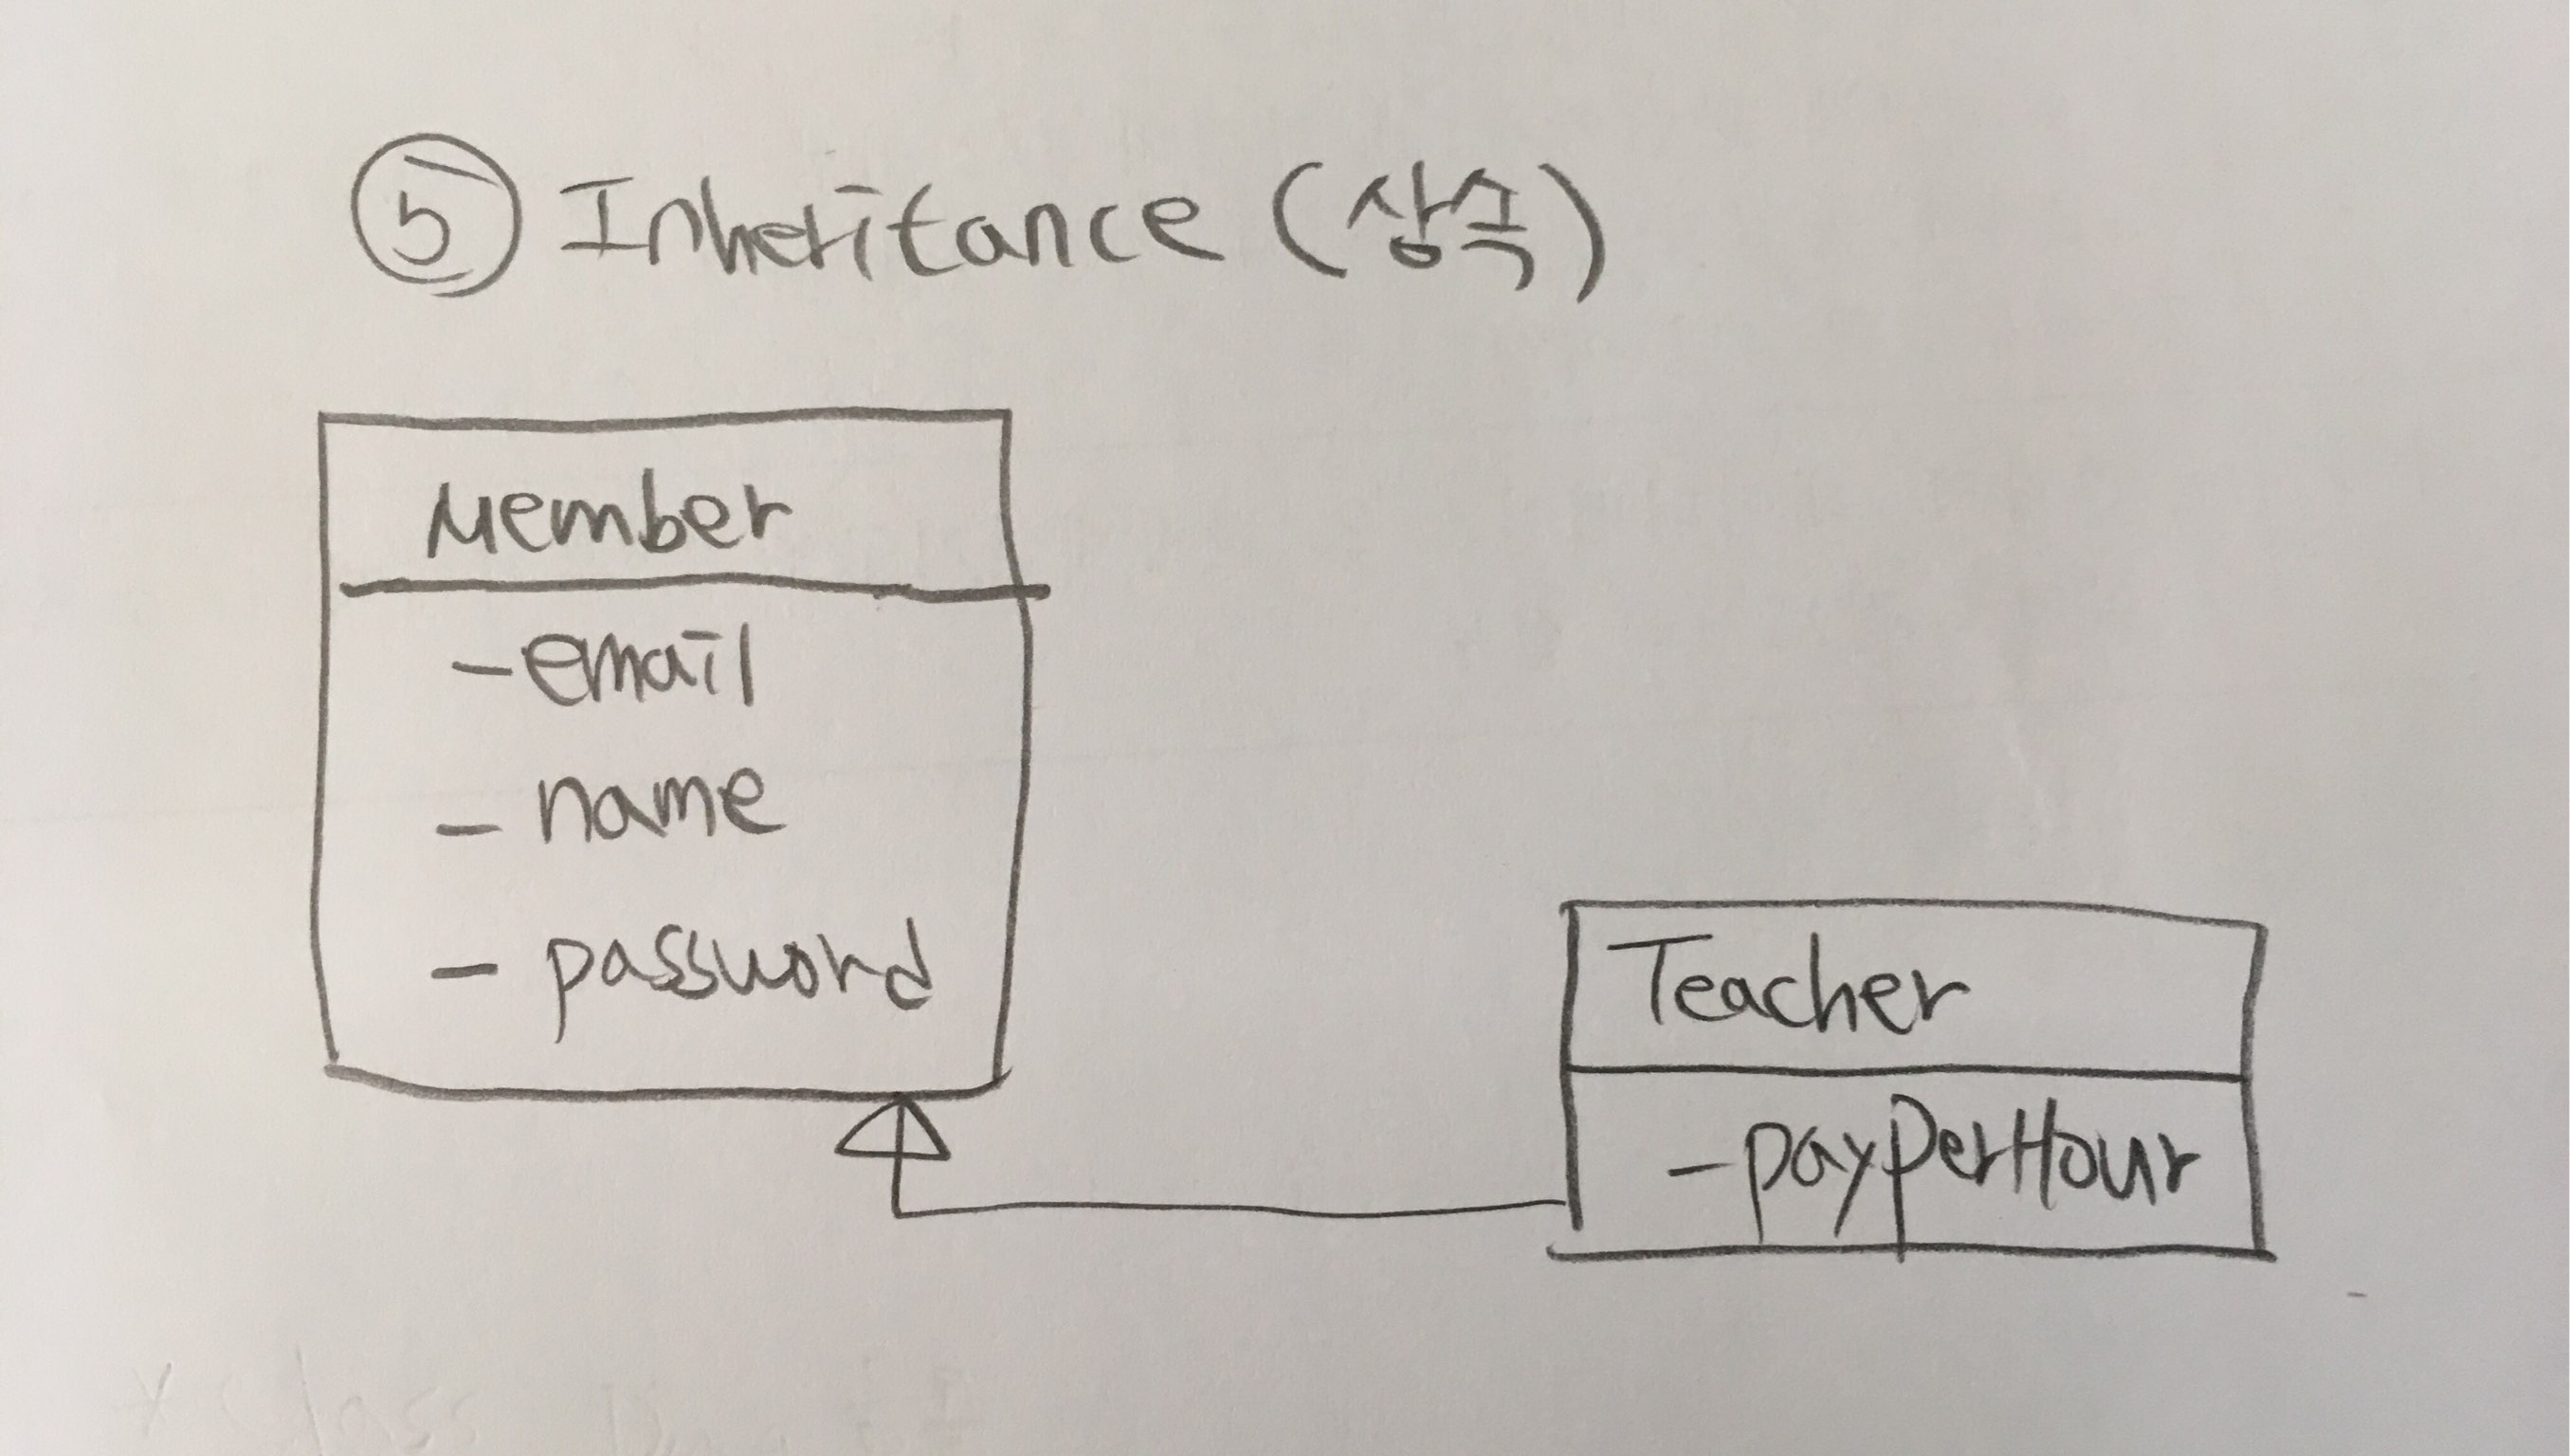 ⑤ Inheritance (상속)
Member
- email
- name
- password
Teacher
- payPerHour
class